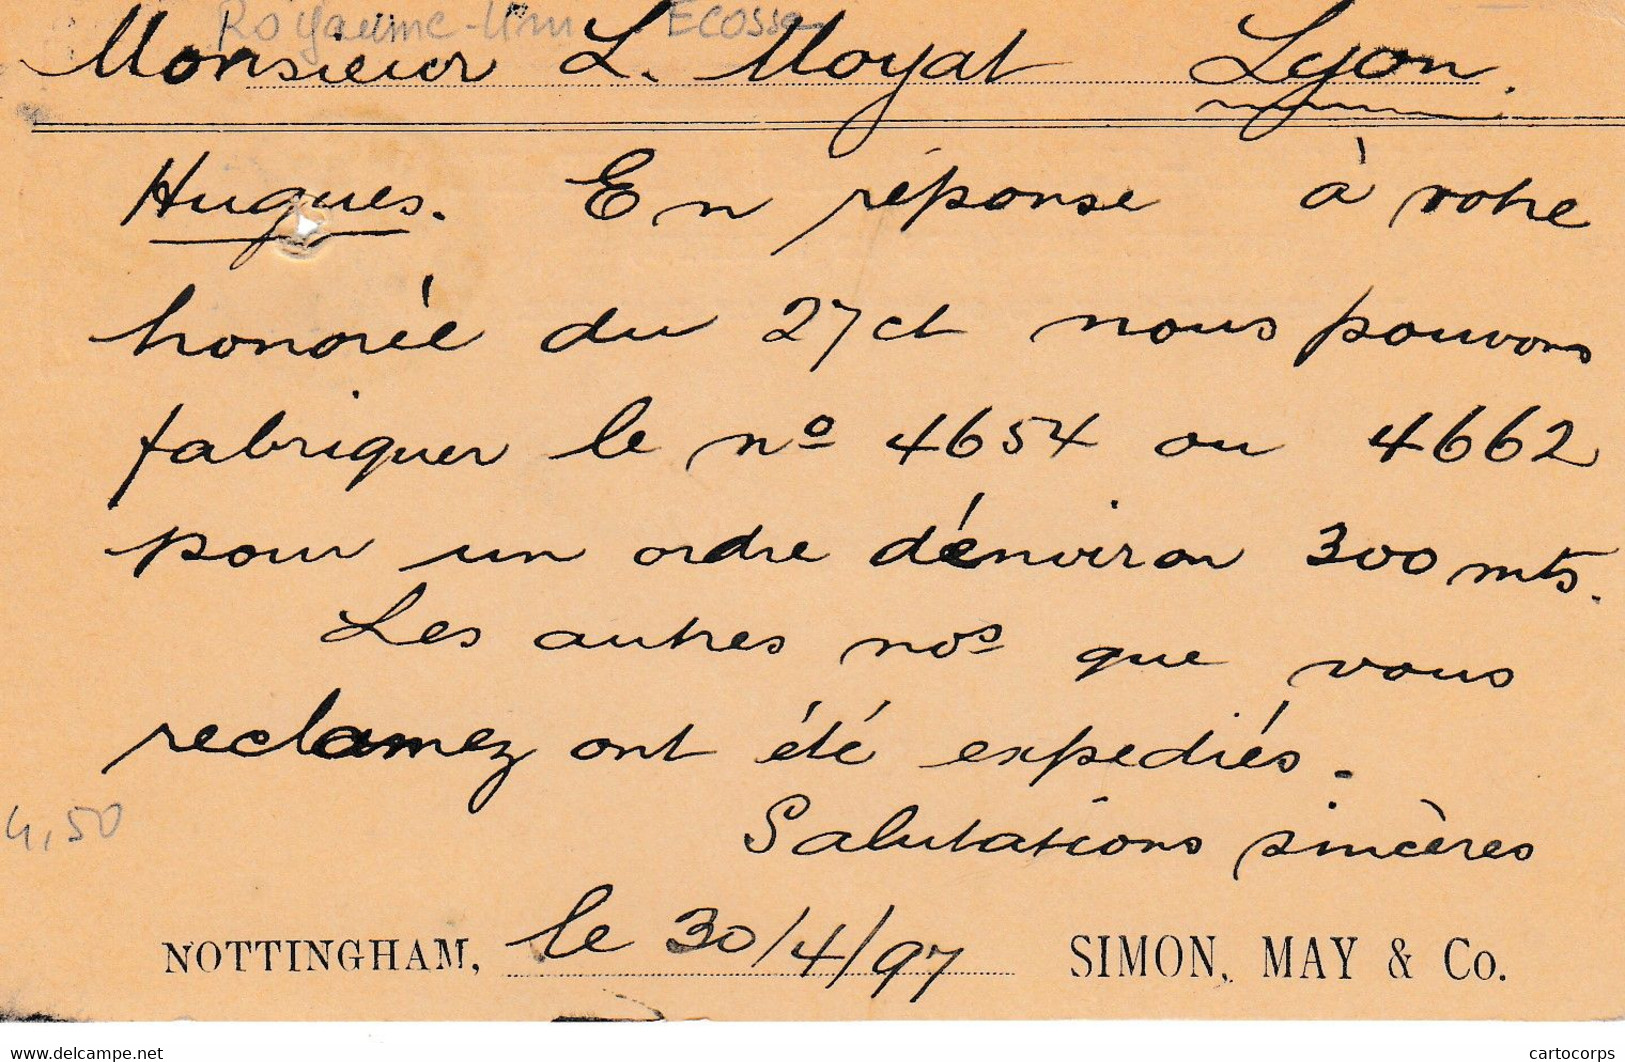 Royaume-Uni Ecosse
Monsieur L. Moyat Lyon.
Hugues. En réponse à votre
honorée du 27 ct nous pouvons
fabriquer le nº 4654 ou 4662
pour un ordre d'environ 300 mts.
Les autres nos que vous
reclamez ont été expediés.
4,50
Salutations sincères
NOTTINGHAM, le 30/4/97 SIMON, MAY & Co.
www.delcampe.net
cartocorps